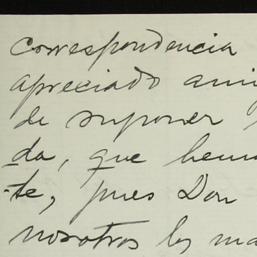 correspondencia
apreciado ami
de suponer
da, que hemo
te, pues Don
nosotros los ma